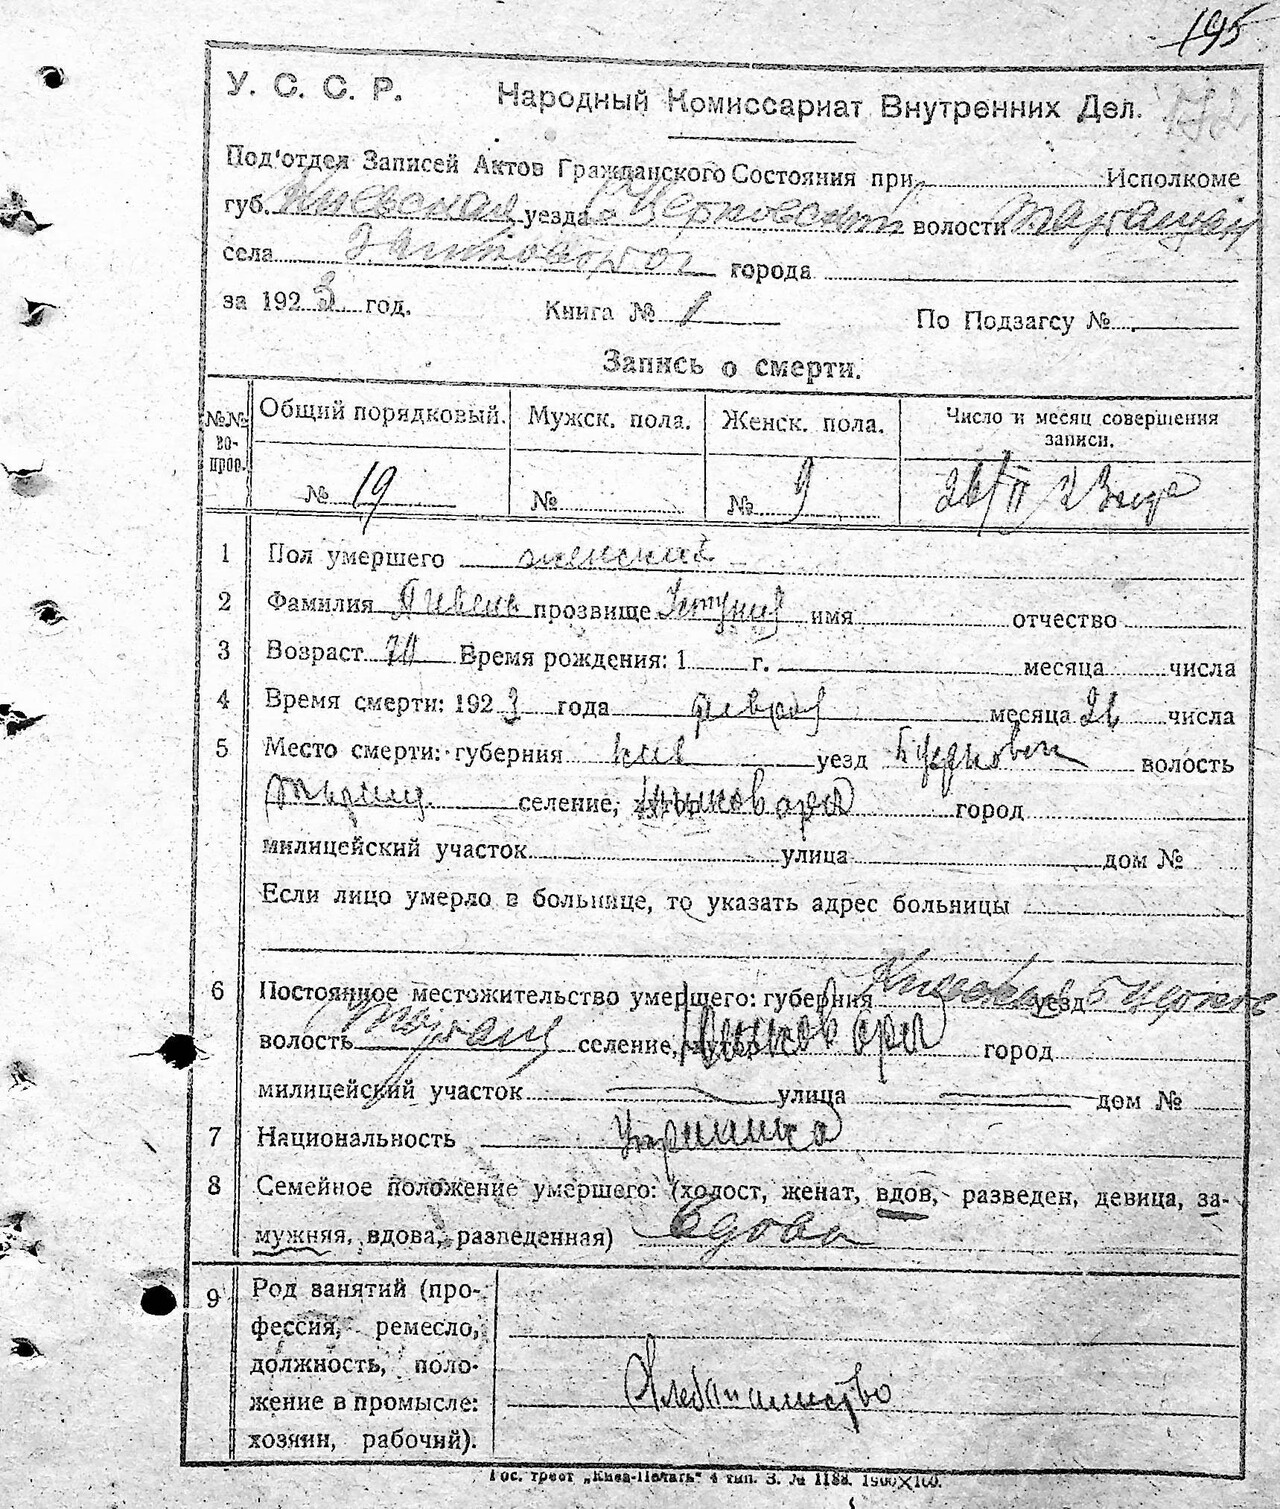 195
У. С. С. Р. Народный Комиссариат Внутренних Дел.
Под'отдел Записей Актов Гражданского Состояния при Исполкоме
губ. Киевская уезда Б Церковский волости
села города
за 1923 год. Книга № 1 По Подзагсу №
Запись о смерти.
№№ вопрос. Общий порядковый. Мужск. пола. Женск. пола. Число и месяц совершения записи.
№ 19 № № 9 26/II 23
1 Пол умершего женский
2 Фамилия Пивень прозвище имя отчество
3 Возраст 70 Время рождения: 1 г. месяца числа
4 Время смерти: 1923 года месяца 26 числа
5 Место смерти: губерния Киев уезд волость
селение, город
милицейский участок улица дом №
Если лицо умерло в больнице, то указать адрес больницы
6 Постоянное местожительство умершего: губерния Киевская уезд Б Церков
волость селение, город
милицейский участок улица дом №
7 Национальность
8 Семейное положение умершего: (холост, женат, вдов, разведен, девица, за-
мужняя, вдова, разведенная) Вдова
9 Род занятий (про-
фессия, ремесло,
должность, поло-
жение в промысле:
хозяин, рабочий).
Хлебопашество
Гос. трест „Киев-Печать“ 4 тип. З. № 1188. 1900×100.